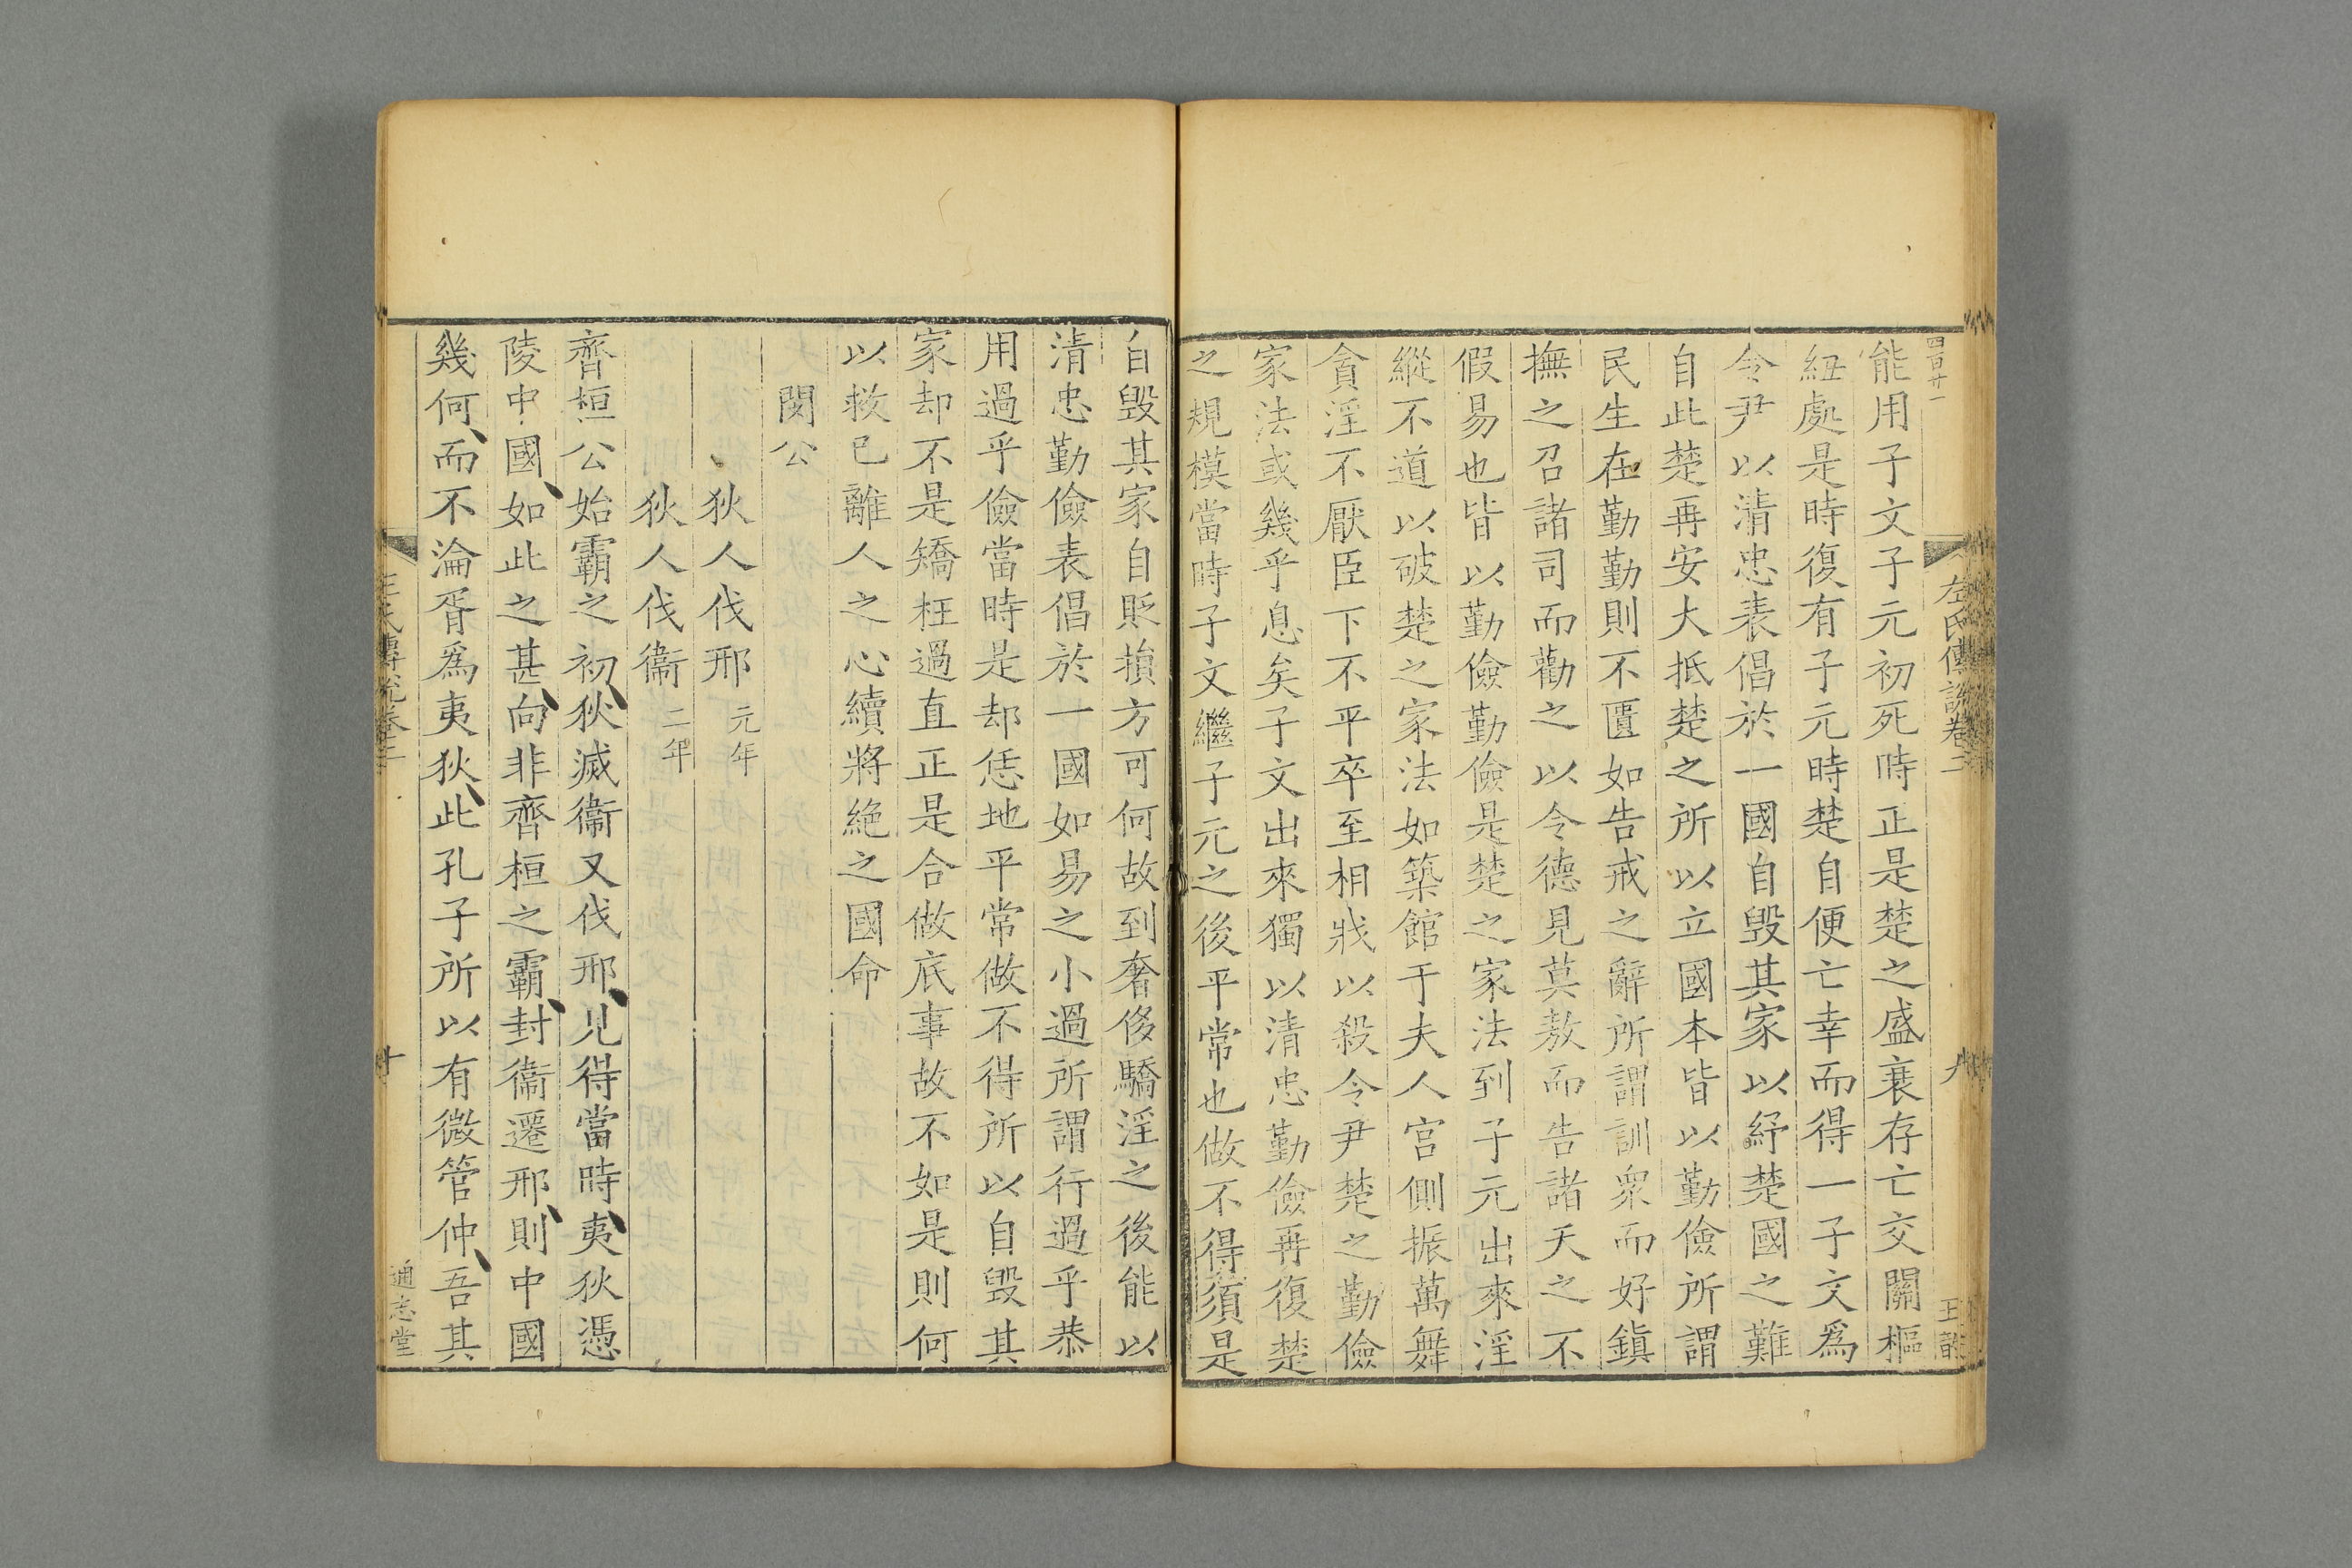 四百廿一
左氏傳說卷二
九
能用子文子元初死時正是楚之盛衰存亡交關樞
紐處是時復有子元時楚自便亡幸而得一子文爲
令尹以清忠表倡於一國自毁其家以紓楚國之難
自此楚再安大抵楚之所以立國本皆以勤儉所謂
民生在勤勤則不匱如告戒之辭所謂訓衆而好鎮
撫之召諸司而勸之以令德見莫敖而告諸天之不
假易也皆以勤儉勤儉是楚之家法到子元出來淫
縱不道以破楚之家法如築館于夫人宫側振萬舞
貪淫不厭臣下不平卒至相戕以殺令尹楚之勤儉
家法或幾乎息矣子文出來獨以清忠勤儉再復楚
之規模當時子文繼子元之後平常也做不得須是
自毁其家自貶損方可何故到奢侈驕淫之後能以
清忠勤儉表倡於一國如易之小過所謂行過乎恭
用過乎儉當時是却恁地平常做不得所以自毁其
家却不是矯枉過直正是合做底事故不如是則何
以救已離人之心續將絶之國命
閔公
狄人伐邢元年
狄人伐衞二年
齊桓公始霸之初狄滅衞又伐邢見得當時夷狄憑
陵中國如此之甚向非齊桓之霸封衞遷邢則中國
幾何而不淪胥爲夷狄此孔子所以有微管仲吾其
左氏傳說卷二
十
通志堂